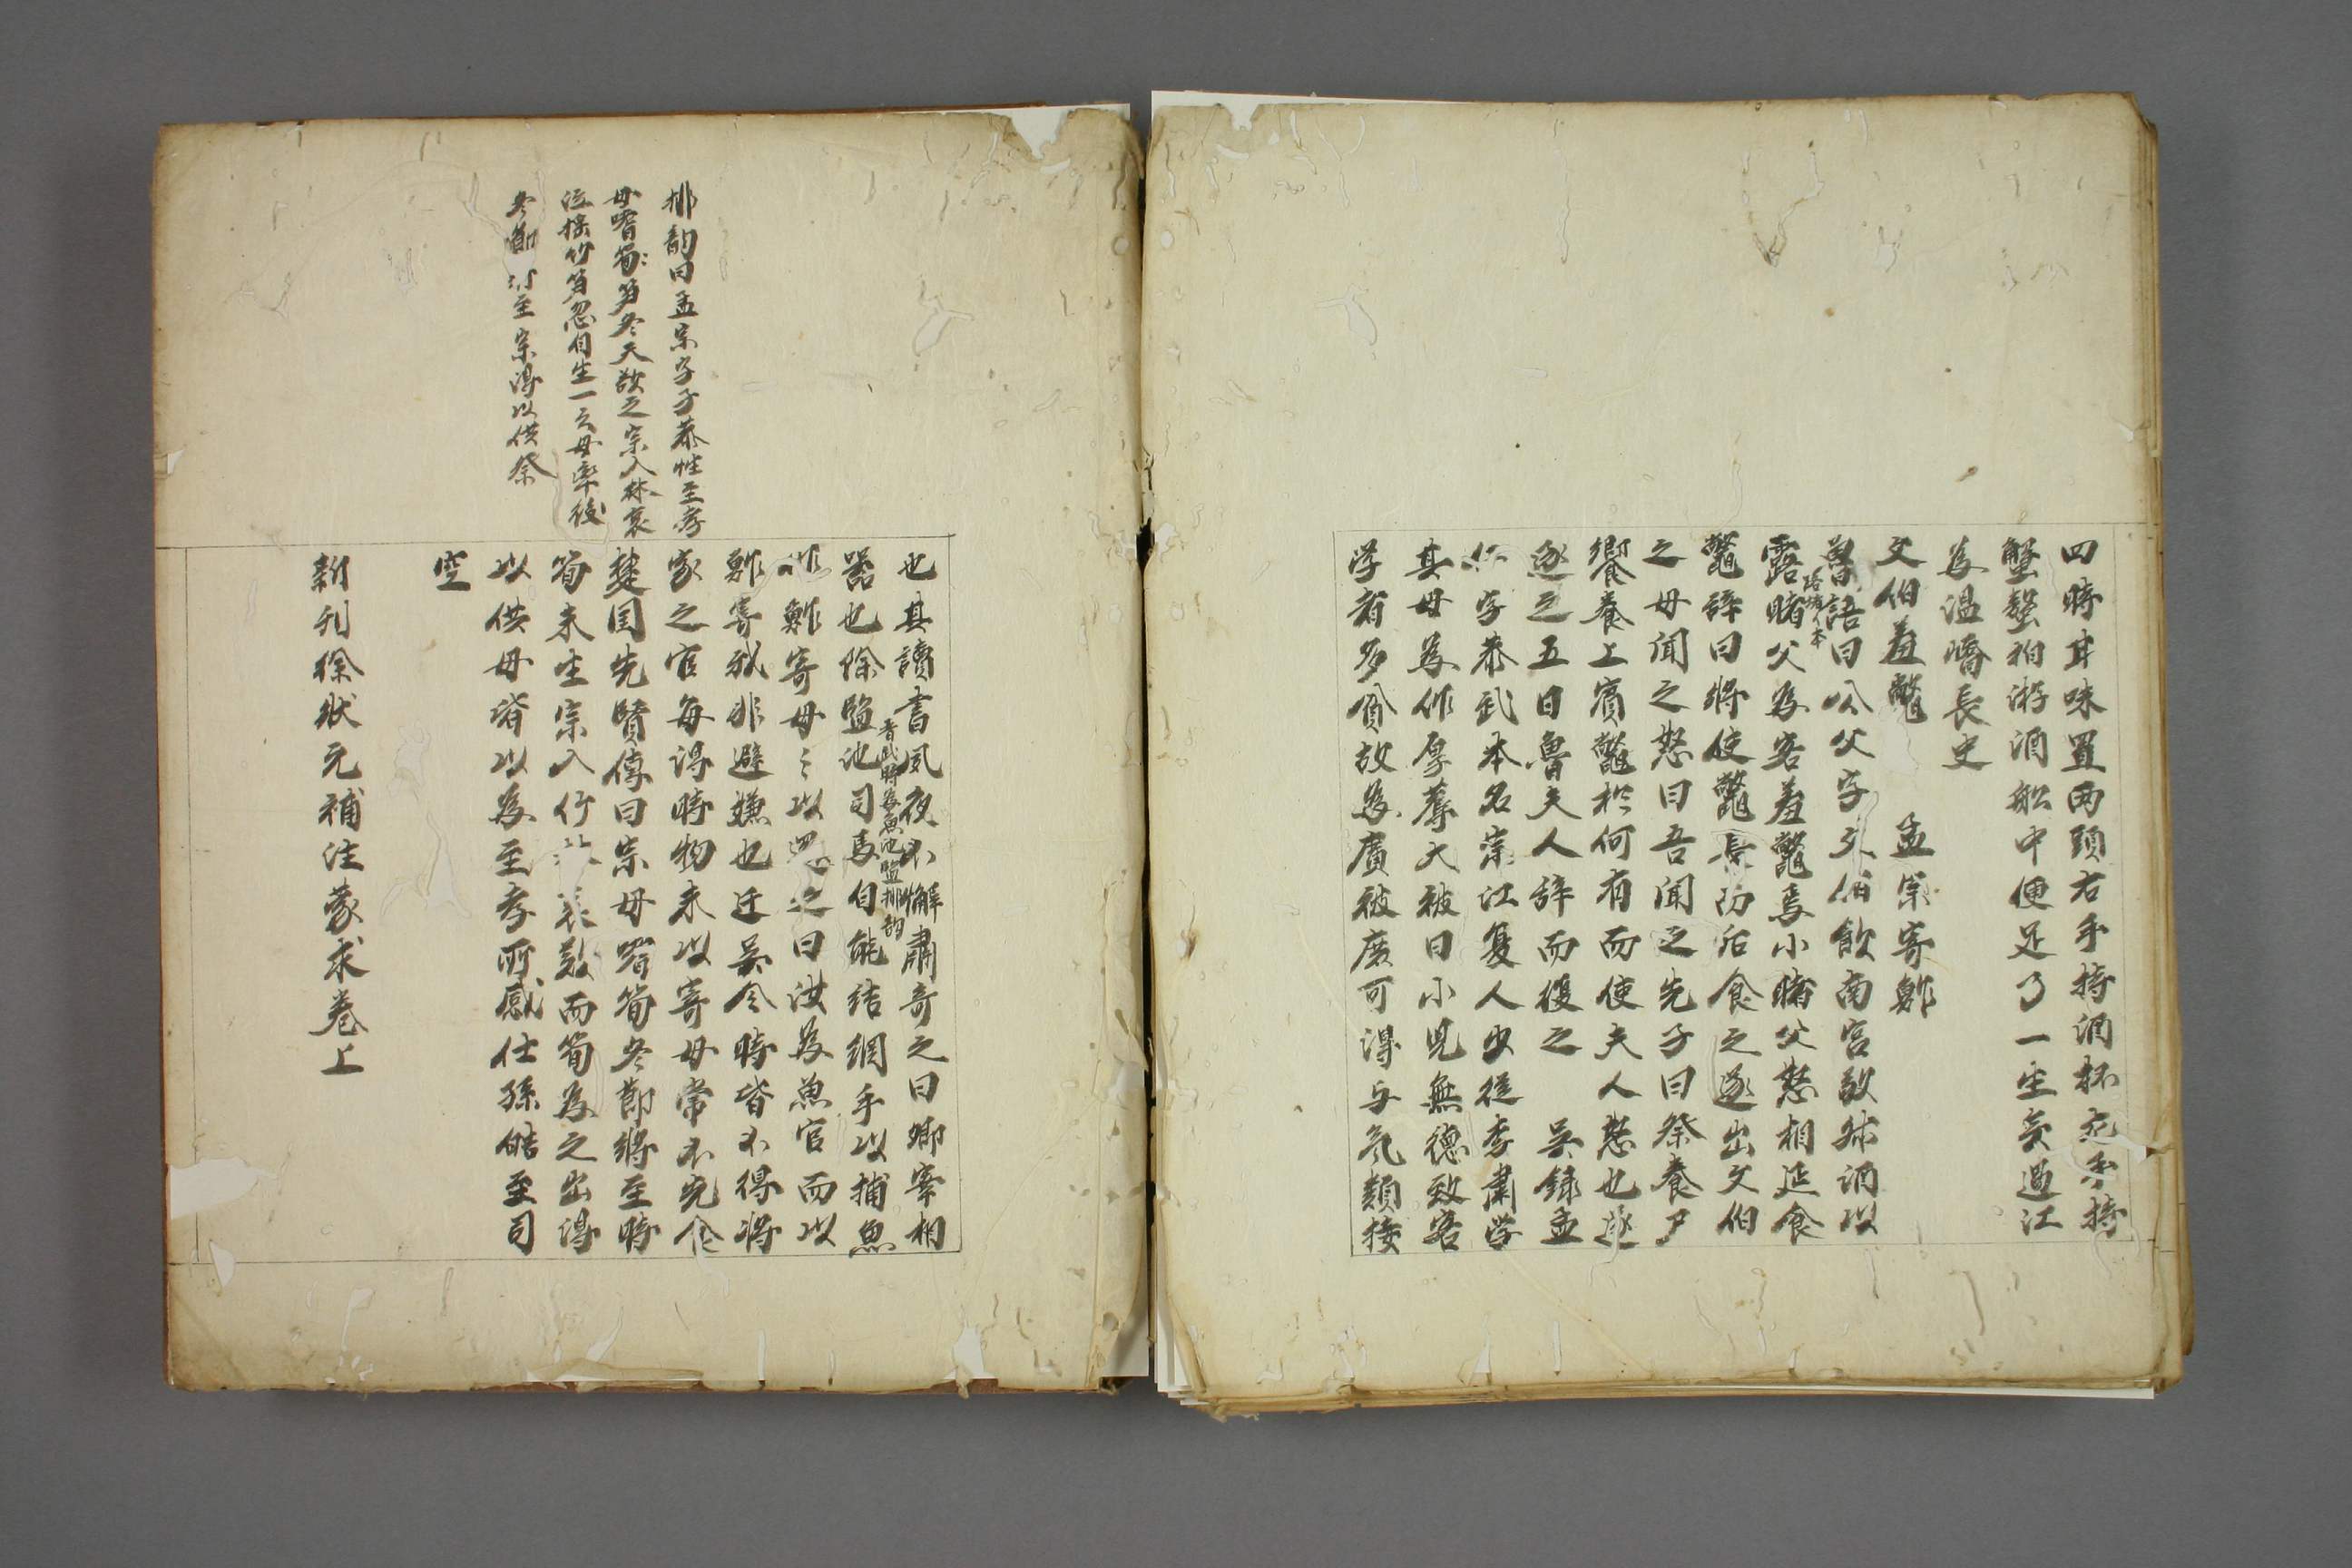 四時甘味置両頭右手持酒杯左手持
蟹螯拍游酒舩中便足了一生矣過江
為温嶠長史
文伯羞鼈　孟宗寄鮓
魯語曰公父字文伯飲南宮敬叔酒以
露睹父為客羞鼈焉小睹父怒相延食
鼈辞曰将使鼈長而后食之遂出文伯
之母聞之怒曰吾聞之先子曰祭養尸
饗養上賓鼈於何有而使夫人怒也遂
逐之五日魯大夫人辞而復之　呉録孟
仁字恭武本名宗江夏人少從李肅学
其母為作厚蓐大被曰小児無徳致客
学者多貧故為廣被庶可得与気類接
也其讀書夙夜不懈肅奇之曰卿宰相
器也除監池司馬自能結網手以捕魚
作鮓寄母〻以還之曰汝為魚官而以
鮓寄我非避嫌也迁呉令時皆不得将
家之官毎得時物来以寄母常不先食
楚国先賢傳曰宗母嗜筍冬節将至時
筍未生宗入竹林哀歎而筍為之出得
以供母皆以為至孝所感仕孫皓至司
空
新刊徐状元補注蒙求巻上
排韵曰孟宗字子恭性至孝
母嗜筍〻冬天欲之宗入林哀
泣揺竹笋忽自生一云母卒後
冬節将至宗得以供祭